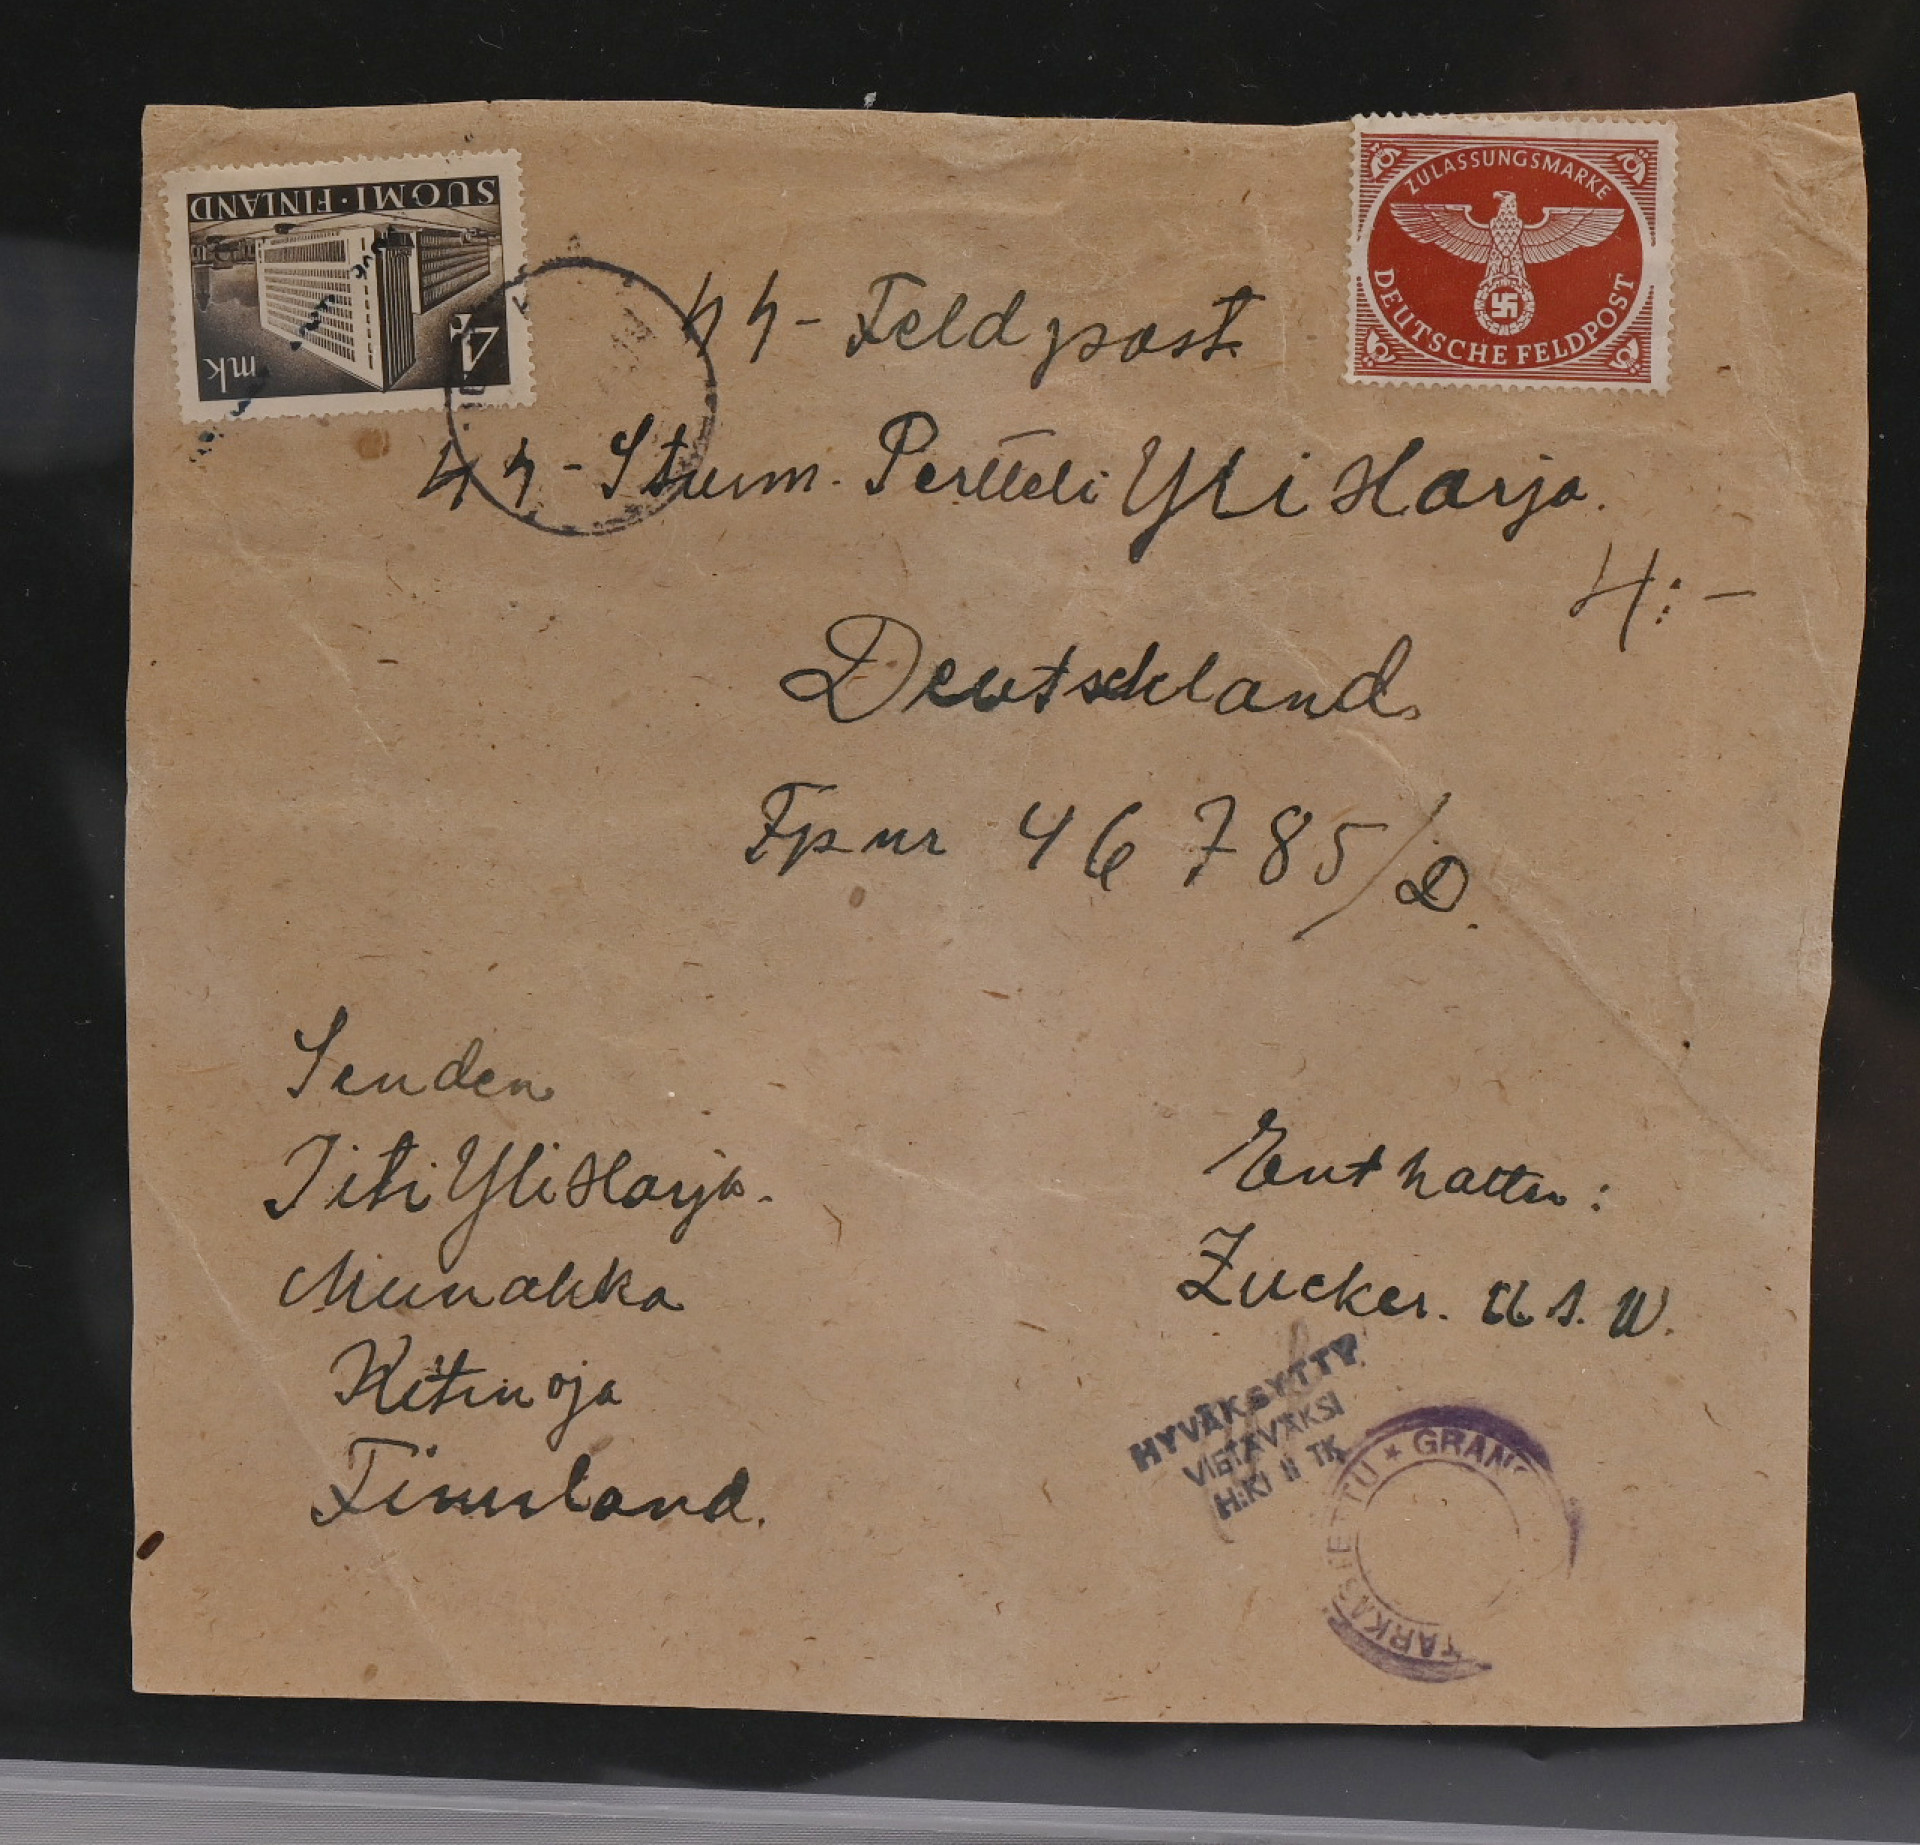 SUOMI·FINLAND
4 mk
ZULASSUNGSMARKE
DEUTSCHE FELDPOST
ϟϟ-Feldpost
ϟϟ-Sturm. Pertteli Yli Harja.
4:-
Deutschland.
Fpnr 46785/D.
Senden
Yli Harja.
Munakka
Kitinoja
Finnland.
Enthatten:
Zucker. u s. w.
HYVÄKSYTTY
VIETÄVÄKSI
H:KI II TK
TARKASTETTU * GRANS